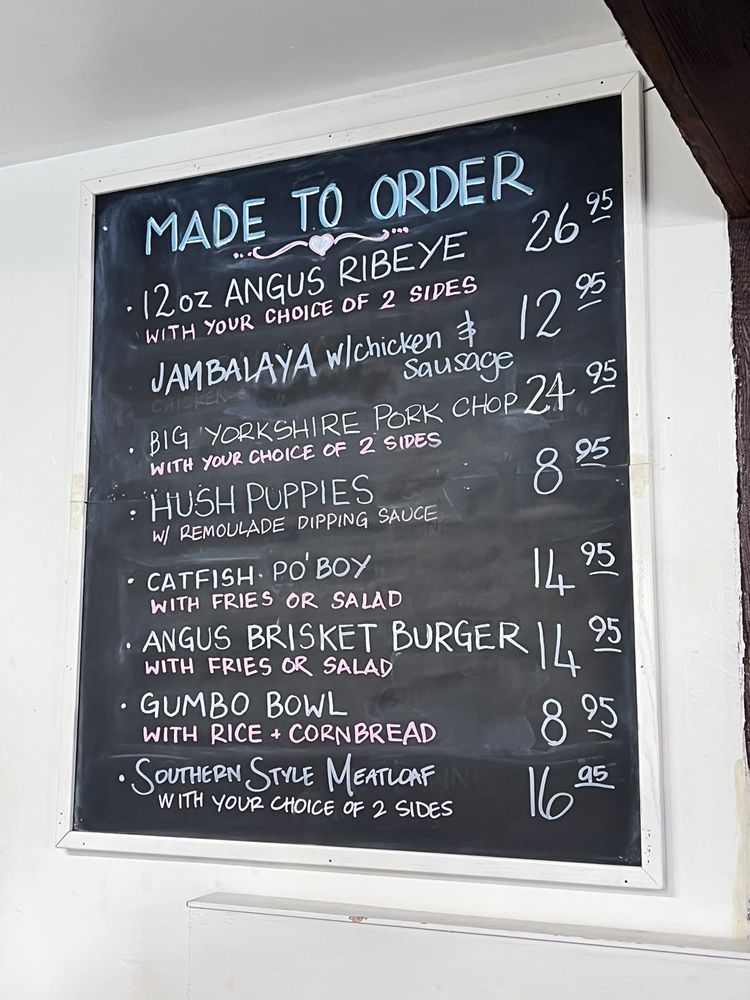 MADE TO ORDER
· 12oz ANGUS RIBEYE 26 95
WITH YOUR CHOICE OF 2 SIDES
JAMBALAYA w/chicken & 12 95
Sausage
· BIG YORKSHIRE PORK CHOP 24 95
WITH YOUR CHOICE OF 2 SIDES
· HUSH PUPPIES 8 95
W/ REMOULADE DIPPING SAUCE
· CATFISH PO'BOY 14 95
WITH FRIES OR SALAD
· ANGUS BRISKET BURGER 14 95
WITH FRIES OR SALAD
· GUMBO BOWL 8 95
WITH RICE + CORNBREAD
· SOUTHERN STYLE MEATLOAF 16 95
WITH YOUR CHOICE OF 2 SIDES